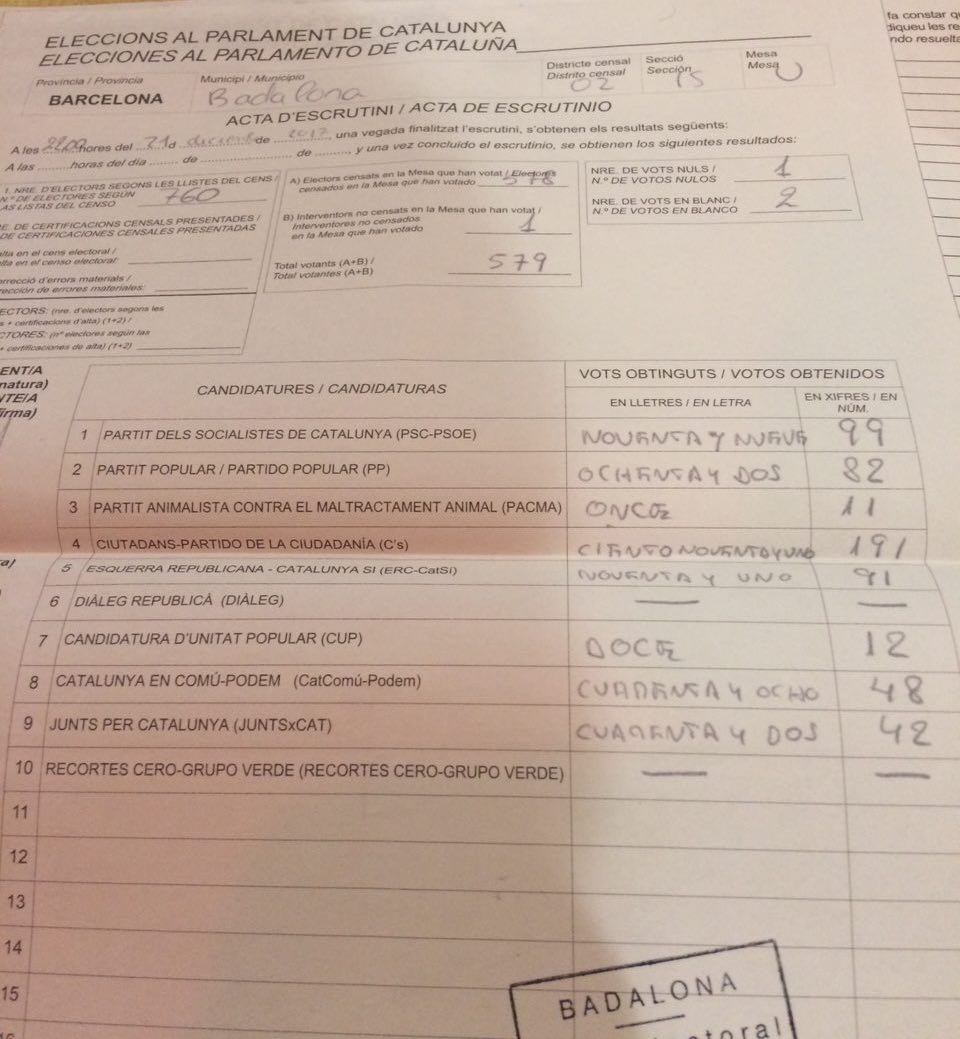 ELECCIONS AL PARLAMENT DE CATALUNYA
ELECCIONES AL PARLAMENTO DE CATALUÑA
Província / Provincia
BARCELONA
Municipi / Municipio
Badalona
Districte censal
Distrito censal
02
Secció
Sección
15
Mesa
Mesa
U
ACTA D'ESCRUTINI / ACTA DE ESCRUTINIO
A les 2200 hores del 21 d diciembre de 2017, una vegada finalitzat l'escrutini, s'obtenen els resultats següents:
A las ........ horas del día ...... de .................... de ........, y una vez concluido el escrutinio, se obtienen los siguientes resultados:
1. NRE. D'ELECTORS SEGONS LES LLISTES DEL CENS /
N.º DE ELECTORES SEGÚN
LAS LISTAS DEL CENSO
760
RE. DE CERTIFICACIONS CENSALS PRESENTADES /
DE CERTIFICACIONES CENSALES PRESENTADAS
alta en el cens electoral /
alta en el censo electoral:
orrecció d'errors materials /
rección de errores materiales:
ECTORS: (nre. d'electors segons les
s + certificacions d'alta) (1+2) /
CTORES: (nº electores según las
+ certificaciones de alta) (1+2)
A) Electors censats en la Mesa que han votat / Electores
censados en la Mesa que han votado 578
B) Interventors no censats en la Mesa que han votat /
Interventores no censados
en la Mesa que han votado
1
Total votants (A+B) /
Total votantes (A+B)
579
NRE. DE VOTS NULS /
N.º DE VOTOS NULOS
1
NRE. DE VOTS EN BLANC /
N.º DE VOTOS EN BLANCO
2
fa constar q
diqueu les re
ndo resuelta
ENT/A
natura)
NTE/A
firma)
CANDIDATURES / CANDIDATURAS
VOTS OBTINGUTS / VOTOS OBTENIDOS
EN LLETRES / EN LETRA
EN XIFRES / EN
NÚM.
1 PARTIT DELS SOCIALISTES DE CATALUNYA (PSC-PSOE) NOVENTA Y NUEVE 99
2 PARTIT POPULAR / PARTIDO POPULAR (PP) OCHENTA Y DOS 82
3 PARTIT ANIMALISTA CONTRA EL MALTRACTAMENT ANIMAL (PACMA) ONCE 11
4 CIUTADANS-PARTIDO DE LA CIUDADANÍA (C's) CIENTO NOVENTA Y UNO 191
5 ESQUERRA REPUBLICANA - CATALUNYA SI (ERC-CatSí) NOVENTA Y UNO 91
6 DIÀLEG REPUBLICÀ (DIÀLEG) — —
7 CANDIDATURA D'UNITAT POPULAR (CUP) DOCE 12
8 CATALUNYA EN COMÚ-PODEM (CatComú-Podem) CUARENTA Y OCHO 48
9 JUNTS PER CATALUNYA (JUNTSxCAT) CUARENTA Y DOS 42
10 RECORTES CERO-GRUPO VERDE (RECORTES CERO-GRUPO VERDE) — —
11
12
13
14
15
BADALONA
toral